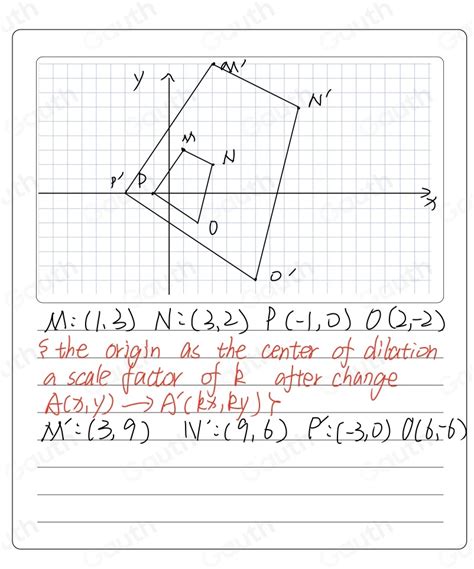 M'
y
N'
M
N
P' P
x
O
O'
M:(1,3) N:(3,2) P(-1,0) O(2,-2)
the origin as the center of dilation
a scale factor of k after change
A(x,y) → A'(kx,ky)
M':(3,9) N':(9,6) P':(-3,0) O'(6,-6)
Gauth